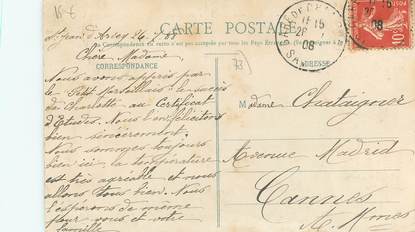 15 €
CARTE POSTALE
La Correspondance au recto n'est pas acceptée par tous les Pays Étrangers
St Jean d'Arvey 26/7/08
Chère Madame
CORRESPONDANCE
Nous avons appris par
le Petit Marseillais le succès
de Charlotte au Certificat
d'Etudes. Nous l'en félicitons
bien sincèrement.
Nous sommes toujours
bien ici, la température
est très agréable et nous
allons tous bien. Nous
l'espérons de même
pour vous et votre
famille
73
ADRESSE
Madame Chataigner
Avenue Madrid
Cannes
A. Mmes
15
08
10